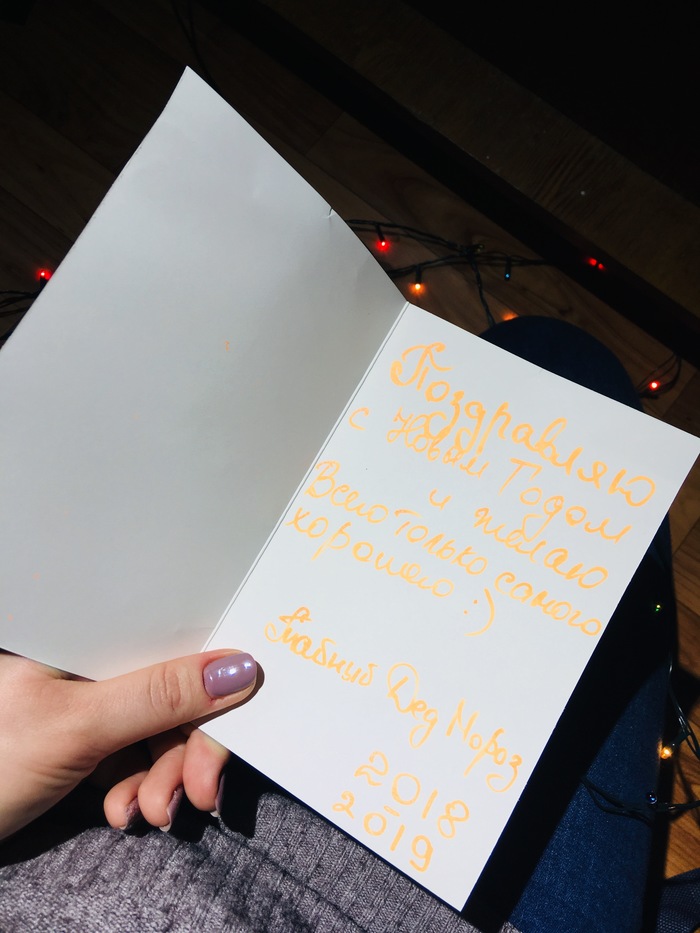 Поздравляю
с Новым Годом
и желаю
Всего только самого
хорошего :)
#Главный Дед Мороз
2018
2019